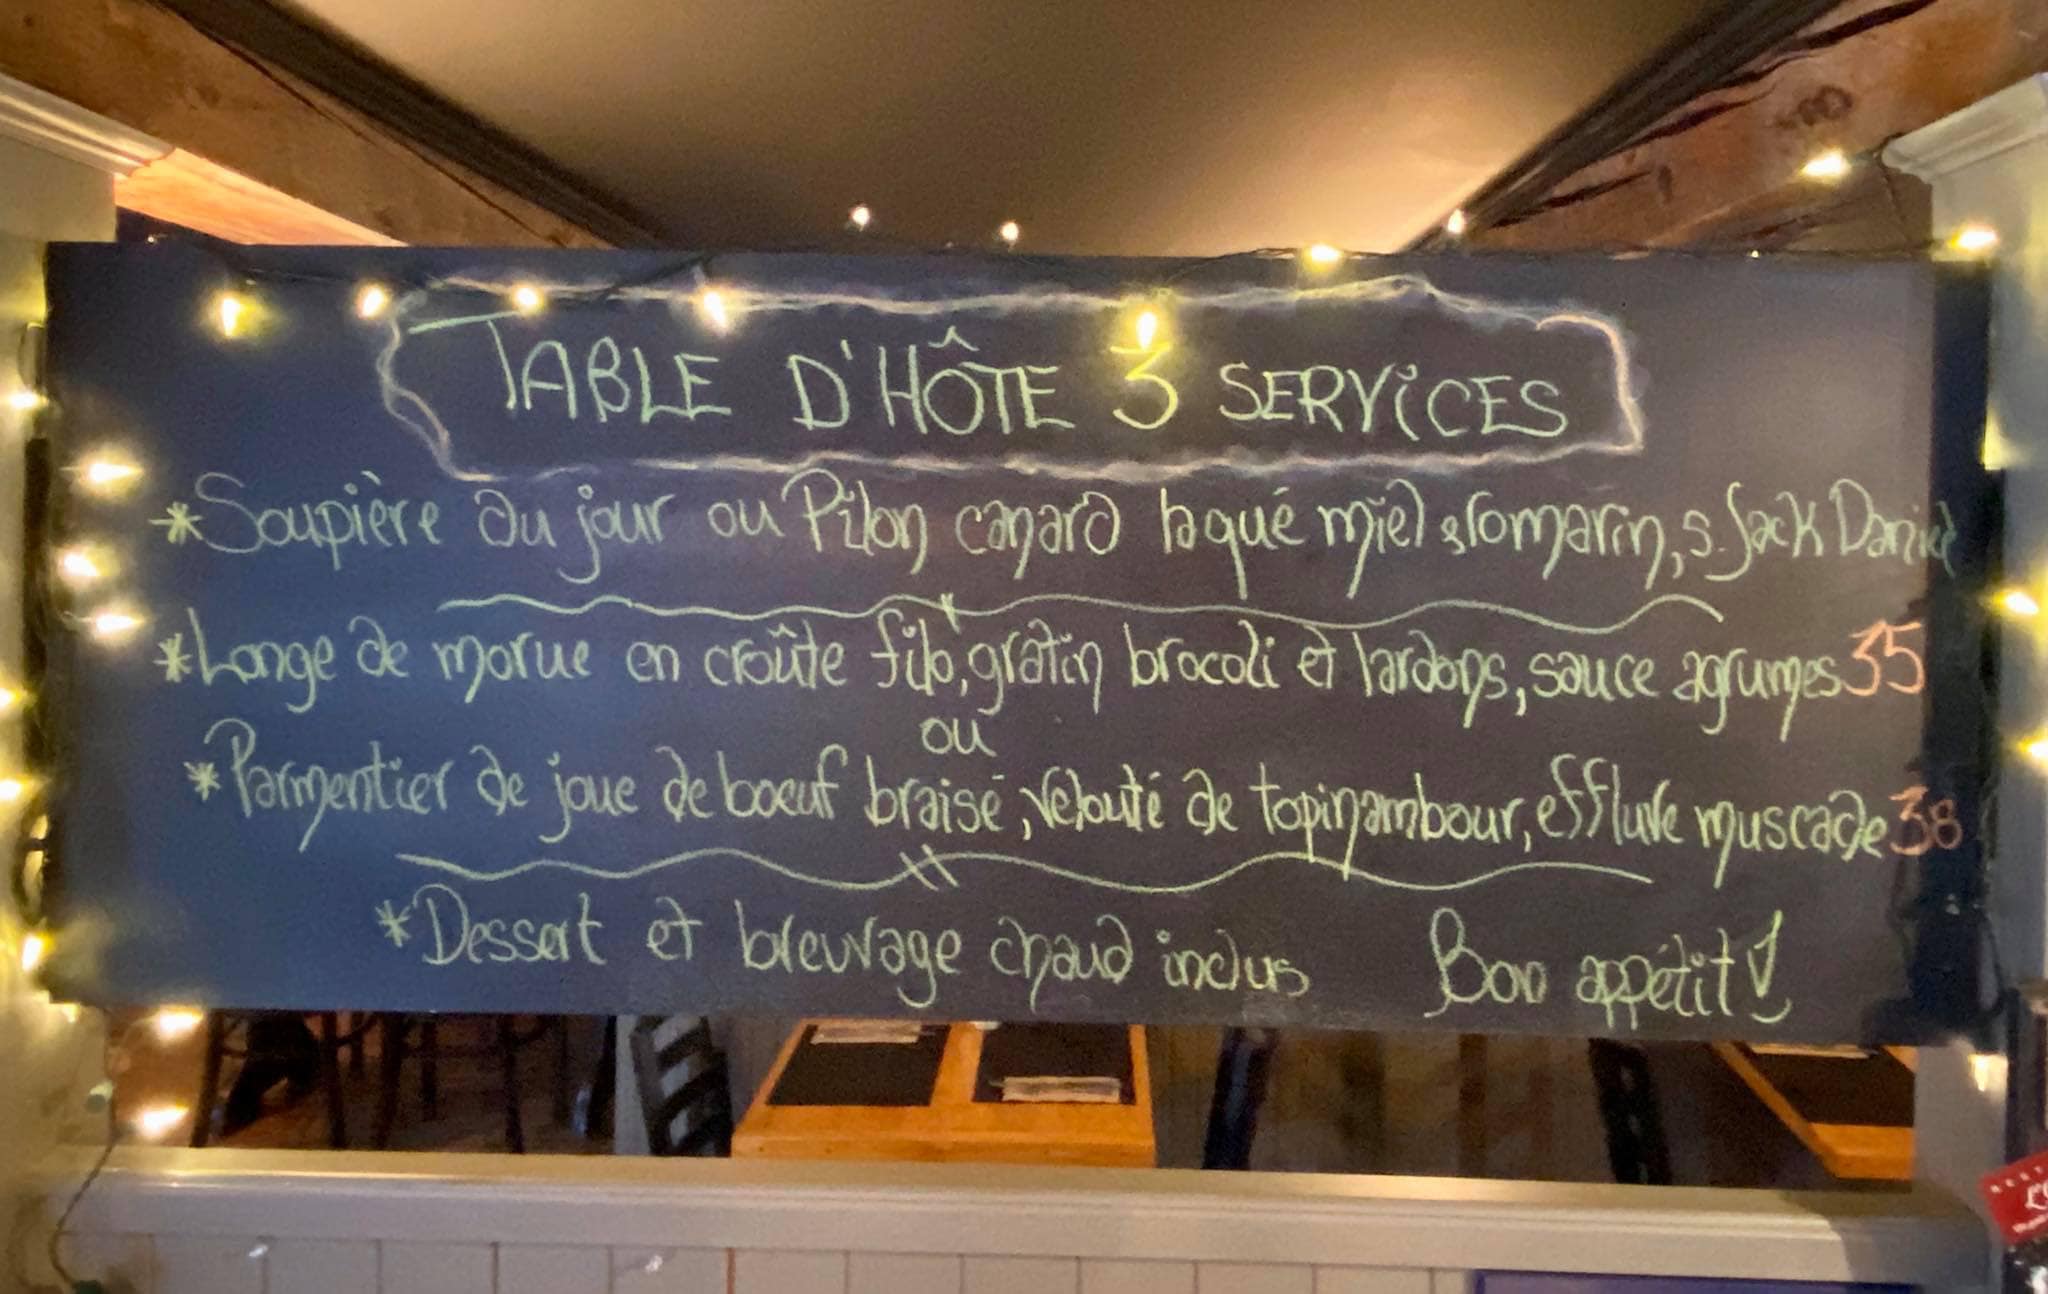 TABLE D'HÔTE 3 SERVICES
*Soupière du jour ou Pilon canard laqué miel & romarin, s. Jack Daniel
*Longe de morue en croûte filo, gratin brocoli et lardons, sauce agrumes 35
ou
*Parmentier de joue de boeuf braisé, velouté de topinambour, effluve muscade 38
*Dessert et breuvage chaud inclus Bon appétit!